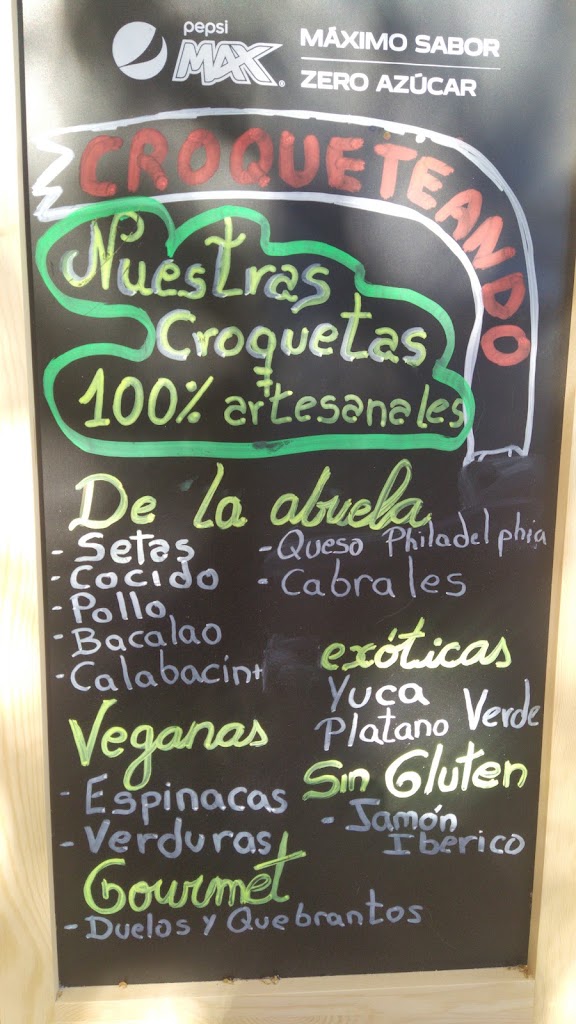 pepsi
MAX®
MÁXIMO SABOR
ZERO AZÚCAR
CROQUETEANDO
Nuestras
Croquetas
100% artesanales
De la abuela
- Setas
- Cocido
- Pollo
- Bacalao
- Calabacín+
- Queso Philadelphia
- Cabrales
exóticas
Yuca
Platano Verde
Veganas
- Espinacas
- Verduras
Sin Gluten
- Jamón
Iberico
Gourmet
- Duelos y Quebrantos